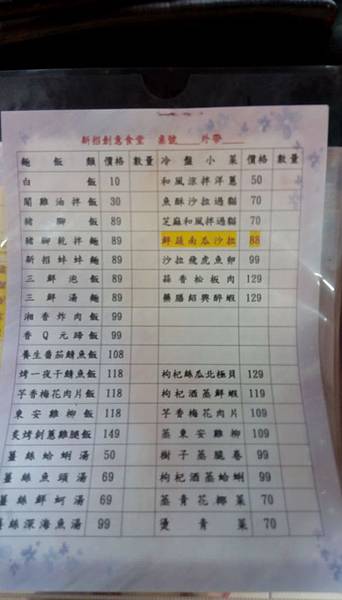 新招創意食堂 桌號____外帶____
麵飯類 價格 數量 冷盤小菜 價格 數量
白飯 10 和風涼拌洋蔥 50
閹雞油拌飯 30 魚酥沙拉過貓 70
豬腳飯 89 芝麻和風拌過貓 70
豬腳乾拌麵 89 鮮蔬南瓜沙拉 88
新招蚌蚌麵 89 沙拉飛虎魚卵 99
三鮮泡飯 89 蒜香松板肉 129
三鮮湯麵 89 藥膳紹興醉蝦 129
湘香炸肉飯 99
香Q元蹄飯 99
養生番茄鯖魚飯 108
烤一夜干鯖魚飯 118 枸杞絲瓜北極貝 129
芋香梅花肉片飯 118 枸杞酒蒸鮮蝦 119
東安雞柳飯 118 芋香梅花肉片 109
炙烤剝蔥雞腿飯 149 蒸東安雞柳 109
薑絲蛤蜊湯 50 樹子蒸腿卷 99
薑絲魚頭湯 69 枸杞酒蒸蛤蜊 99
薑絲鮮蚵湯 69 蒸青花椰菜 70
薑絲深海魚湯 99 燙青菜 70